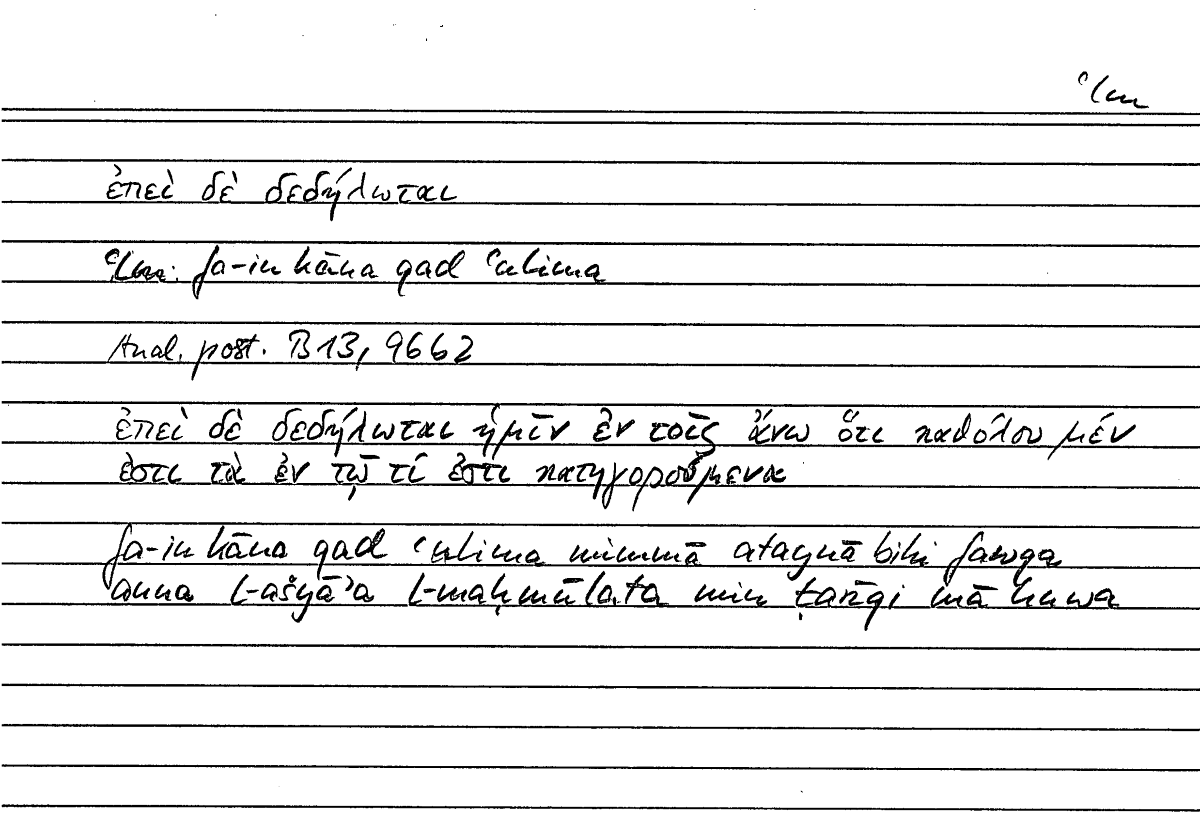 ʿlm
ἐπεὶ δὲ δεδήλωται
ʿlm: fa-in kāna qad ʿulima
Anal. post. B13, 96b2
ἐπεὶ δὲ δεδήλωται ἡμῖν ἐν τοῖς ἄνω ὅτι καθόλου μέν
ἐστι τὰ ἐν τῷ τί ἐστι κατηγορούμενα
fa-in kāna qad ʿulima mimmā ataynā bihi fawqa
anna l-ašyāʾa l-maḥmūlata min ṭarīqi mā huwa